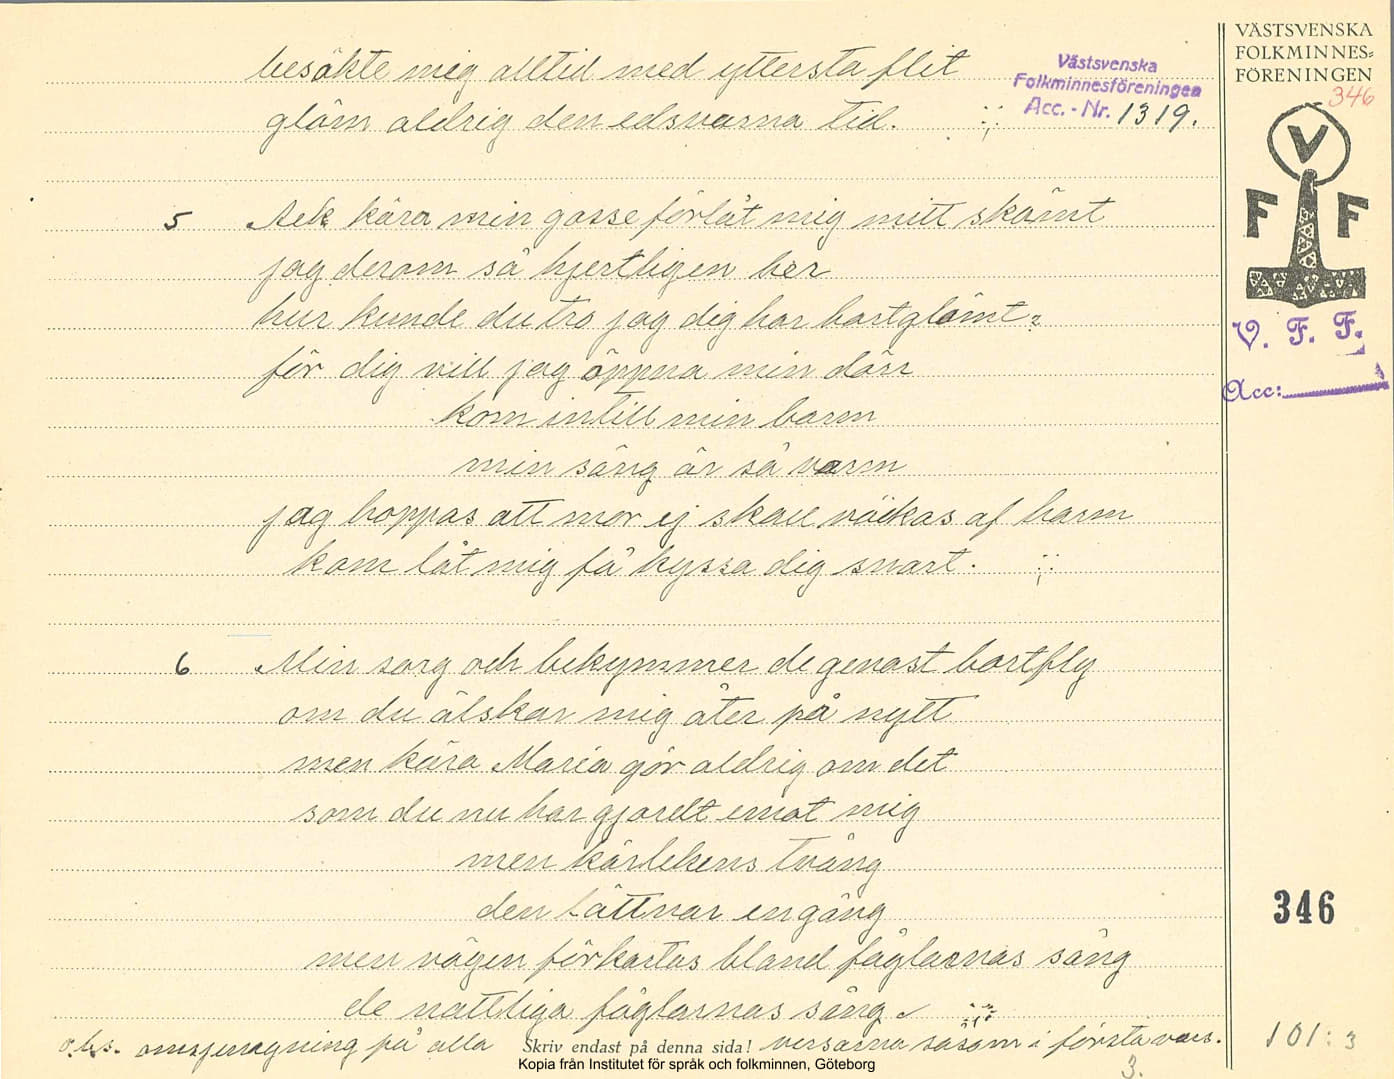 besökte mig alltid med yttersta flit
glöm aldrig den edsvurna tid. :;
Västsvenska
Folkminnesföreningen
Acc. - Nr. 1319.
5 Ack kära min gosse förlåt mig mitt skämt
jag derom så hjertligen ber
hur kunde du tro jag dig har bortglömt?
för dig vill jag öppna min dörr
kom intill min barm
min säng är så varm
jag hoppas att mor ej skall väckas af harm
kom låt mig få kyssa dig snart. :;:
6 Min sorg och bekymmer de genast bortfly
om du älskar mig åter på nytt
men kära Maria gör aldrig om det
som du nu har gjordt emot mig
men kärlekens tvång
den lättnar engång
men vägen förkortas bland fåglarnas sång
de nattliga fåglarnas sång.
obs. omsjungning på alla versarna såsom i första vers.
Skriv endast på denna sida!
3.
Kopia från Institutet för språk och folkminnen, Göteborg
VÄSTSVENSKA
FOLKMINNES=
FÖRENINGEN
346
V
F F
V. F. F.
Acc:
346
101:3